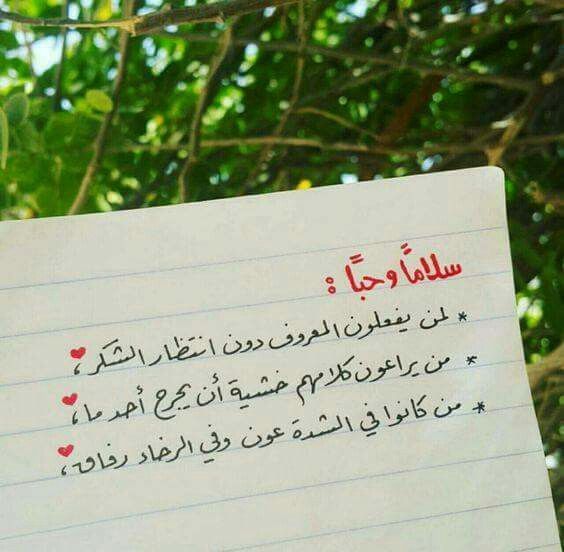 سلامًا وحبًا :
* لمن يفعلون المعروف دون انتظار الشكر،
* من يراعون كلامهم خشية أن يجرح أحد ما،
* من كانوا في الشدة عون وفي الرخاء رفاق،